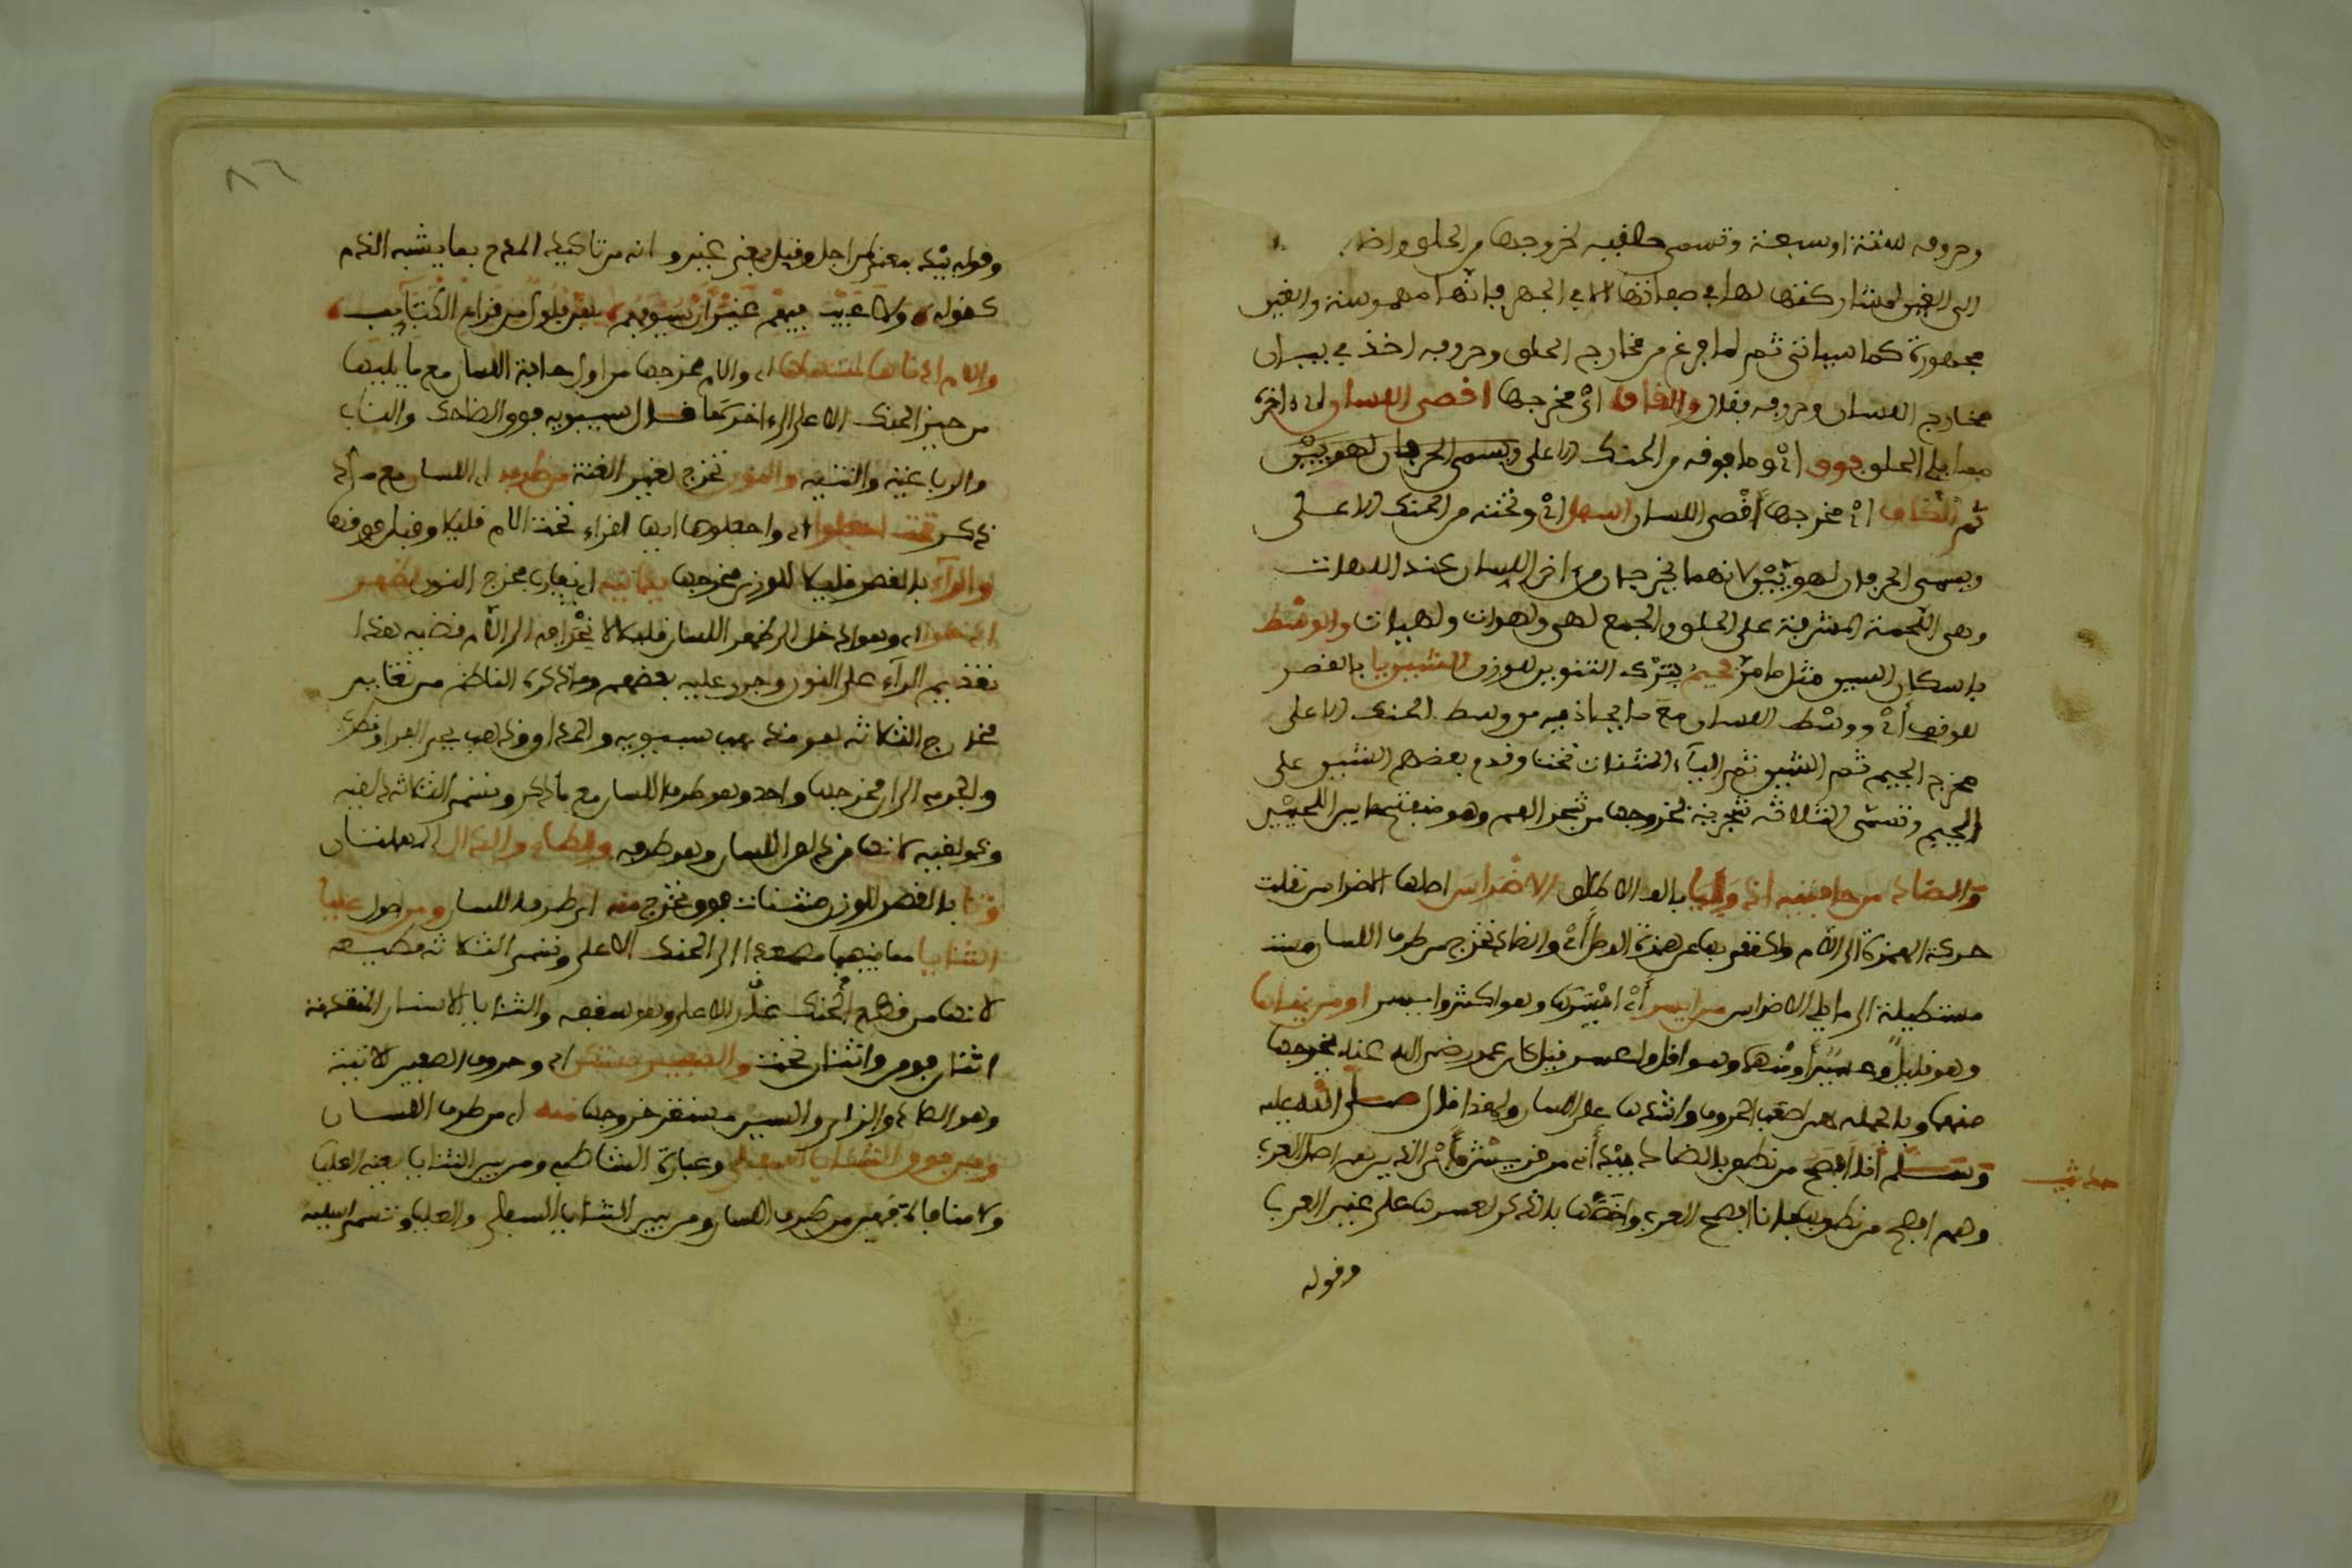 وحروفه ستة او سبعة وتسمى حلقية لخروجها من الحلق واضا
الى الغين لمشاركتها لها في صفاتها الا في الجهر فانها مهموسة والغين
مجهورة كما سياتي ثم لما فرغ من مخارج الحلق وحروفه اخذ في بيان
مخارج اللسان وحروفه فقال والقاف اي مخرجها اقصى اللسان اي اخره
مما يلي الحلق فوق اي وما فوقه من الحنك الاعلى ويسمى الحرفان لهويين
ثم الكاف اي مخرجها أقصى اللسان اسفل اي وتحته من الحنك الاعلى
ويسمى الحرفان لهويين لانهما يخرجان من اخر اللسان عند اللهات
وهي اللحمة المشرفة على الحلق والجمع لهى ولهوات ولهيات والوسط
باسكان السين مثل ما مر فجيم بترك التنوين للوزن الشين يا بالقصر
للوقف أي ووسط اللسان مع ما يحاذيه من وسط الحنك الاعلى
مخرج الجيم ثم الشين ثم الياء المثنات تحت وقدم بعضهم الشين على
الجيم وتسمى الثلاثة شجرية لخروجها من شجر الفم وهو منفتح ما بين اللحيين
والضاد من حافته اذ وليا بالف الاطلاق الاضراس اصلها الاضراس نقلت
حركة الهمزة الى اللام واكتفى بها عن همزة الوصل أي والضاد تخرج من طرف اللسان
مستطيلة الى ما يلي الاضراس من ايسر أي ايسرها وهو اكثر وايسر او من يمناها
وهو قليل وعسير أو منهما وهو اقل واعسر قيل كان عمر رضي الله عنه يخرجها
منهما وبالجملة هي اصعب الحروف واشدها على اللسان ولهذا قال صلى الله عليه
وسلم أنا افصح من نطق بالضاد بيد أني من قريش أي الذين هم اصل العرب
حديث
وهم افصح من نطق بها فانا افصح العرب واخصها بالذكر لعسرها على غير العرب
وقوله
٨٦
وقوله بيد بمعنى من اجل وقيل بمعنى غير وانه من تاكيد المدح بما يشبه الذم
كقوله ولا عيب فيهم غير ان سيوفهم بهن فلول من قراع الكتائب
واللام ادناها لمنتهاها اي واللام مخرجها من اول حافة اللسان مع ما يليها
من حيز الحنك الاعلى الى اخرها قال سيبويه فوق الضاحك والناب
والرباعية والثنية والنون تخرج لغير الغنة من طرفه اي اللسان مع ما
ذكر تحت اجعلوا اي واجعلوها ايها القراء تحت اللام قليلا وقيل فوقها
والرا بالقصر للوزن مخرجها يدانيه اي يقارب مخرج النون لظهر
ادخلوا اي وهو ادخل الى ظهر اللسان قليلا لانحرافه الى اللام
تقديم الراء على النون وجرى عليه بعضهم وما ذكره الناظم من تغاير
مخارج الثلاثة هو مذهب سيبويه
والجرمي الى ان مخرجها واحد وهو طرف اللسان مع ما ذكر وتسمى الثلاثة ذلقية
وذولقية لانها من ذلق اللسان وهو طرفه والطاء والدال المهملتان
وتا بالقصر للوزن مثنات فوق تخرج منه اي طرف اللسان ومن اصول عليا
الثنايا مصعدا الى الحنك الاعلى وتسمى الثلاثة نطعية
والثنايا الاسنان المتقدمة
اثنان فوق واثنان تحت والصفير مستكن اي وحروف الصفير الاتية
وهو الصاد والزاي والسين مستقر خروجها منه اي من طرف اللسان
ومن فوق الثنايا السفلى وعبارة الشاطبي ومن بين الثنايا يعني العليا
ولا منافاة فهي من طرف اللسان ومن بين الثنايا السفلى والعليا وتسمى اسلية